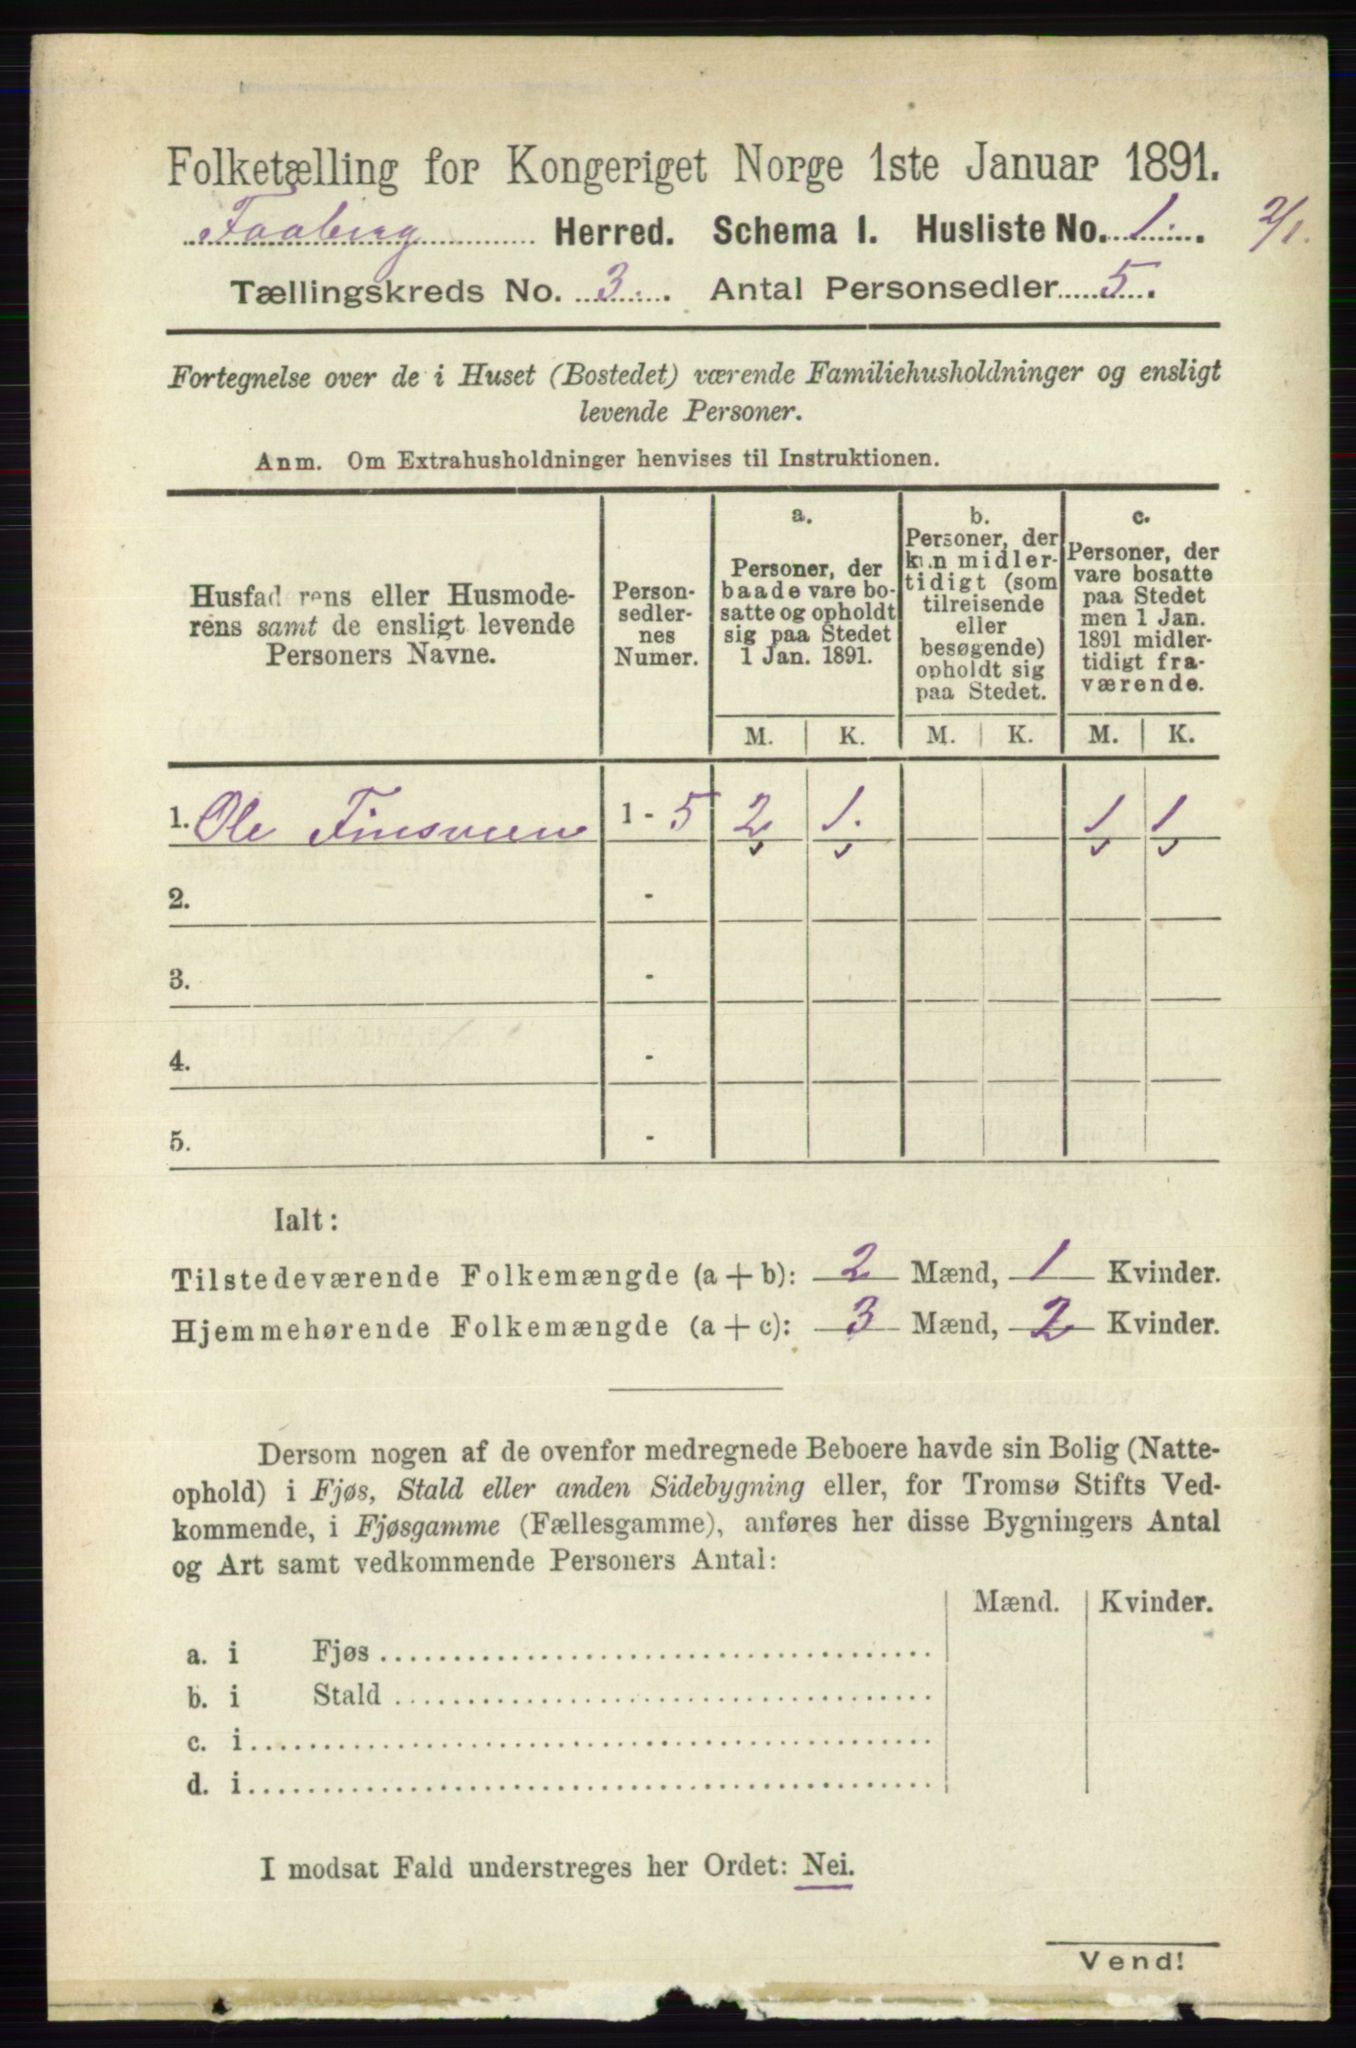 Folketælling for Kongeriget Norge 1ste Januar 1891.
Faaberg Herred. Schema I. Husliste No. 1. 2/1.
Tællingskreds No. 3. Antal Personsedler 5.
Fortegnelse over de i Huset (Bostedet) værende Familiehusholdninger og ensligt
levende Personer.
Anm. Om Extrahusholdninger henvises til Instruktionen.
Husfadrens eller Husmode-
rens samt de ensligt levende
Personers Navne.
Person-
sedler-
nes
Numer.
a.
Personer, der
baade vare bo-
satte og opholdt
sig paa Stedet
1 Jan. 1891.
b.
Personer, der
kun midler-
tidigt (som
tilreisende
eller
besøgende)
opholdt sig
paa Stedet.
c.
Personer, der
vare bosatte
paa Stedet
men 1 Jan.
1891 midler-
tidigt fra-
værende.
M. K. M. K. M. K.
1. Ole Finsveen 1 - 5 2 1. 1 1
2. -
3. -
4. -
5. -
Ialt:
Tilstedeværende Folkemængde (a + b): 2 Mænd, 1 Kvinder.
Hjemmehørende Folkemængde (a + c): 3 Mænd, 2 Kvinder.
Dersom nogen af de ovenfor medregnede Beboere havde sin Bolig (Natte-
ophold) i Fjøs, Stald eller anden Sidebygning eller, for Tromsø Stifts Ved-
kommende, i Fjøsgamme (Fællesgamme), anføres her disse Bygningers Antal
og Art samt vedkommende Personers Antal:
Mænd. Kvinder.
a. i Fjøs
b. i Stald
c. i
d. i
I modsat Fald understreges her Ordet: Nei.
Vend!